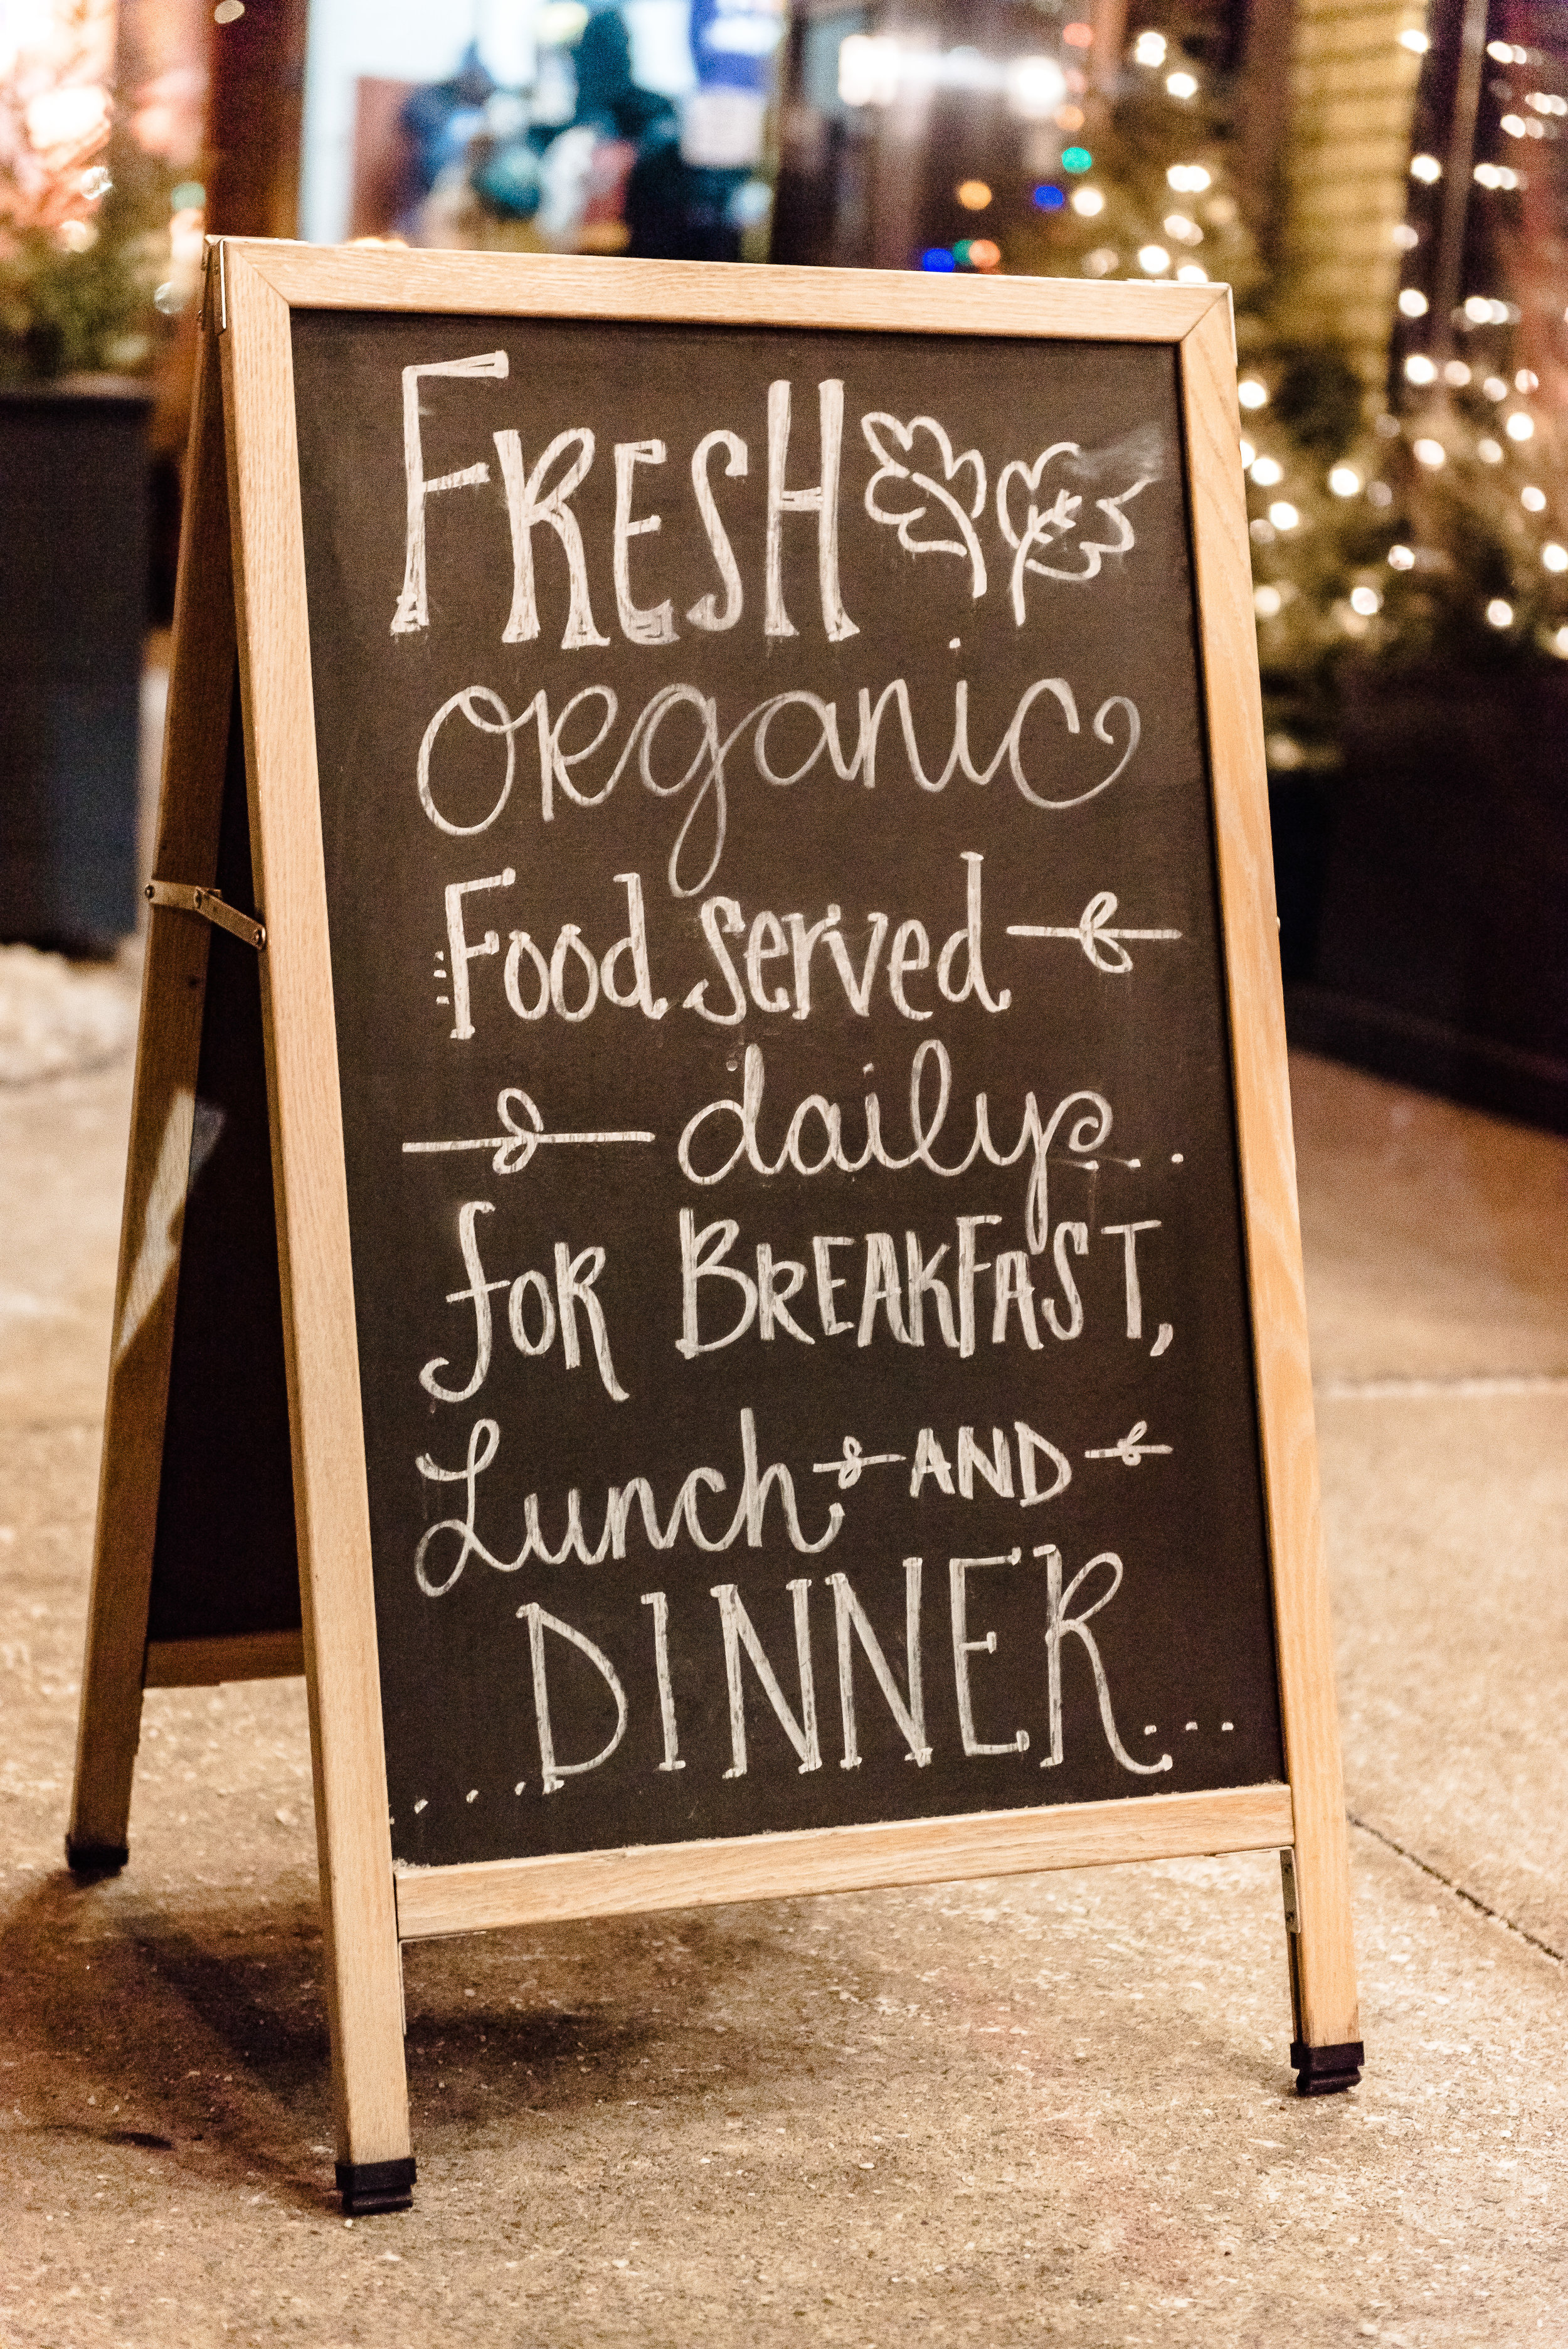 FRESH
organic
Food served
daily...
for BREAKFAST,
Lunch AND
...DINNER...